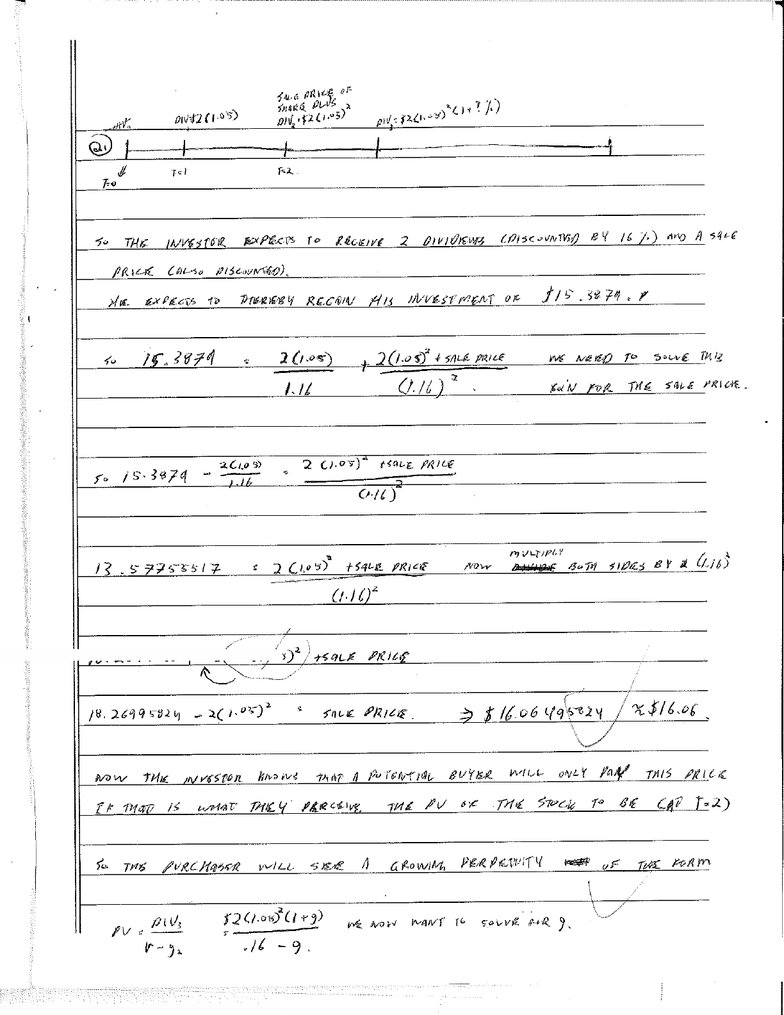 SALE PRICE OF
SHARE PLUS
DIV $2(1.05) DIV2 = $2(1.05)² DIV3 = $2(1.05)²(1+?%)
Q1
T=0 T=1 T=2
SO THE INVESTOR EXPECTS TO RECEIVE 2 DIVIDENDS (DISCOUNTED BY 16%) AND A SALE
PRICE (ALSO DISCOUNTED).
HE EXPECTS TO THEREBY REGAIN HIS INVESTMENT OF $15.3879.
SO 15.3879 = 2(1.05)/1.16 + 2(1.05)² + SALE PRICE/(1.16)². WE NEED TO SOLVE THIS
EQ'N FOR THE SALE PRICE.
SO 15.3879 - 2(1.05)/1.16 = 2(1.05)² + SALE PRICE/(1.16)²
13.57755517 = 2(1.05)² + SALE PRICE/(1.16)² NOW MULTIPLY BOTH SIDES BY (1.16)²
)² + SALE PRICE
18.26995824 - 2(1.05)² = SALE PRICE. ⇒ $16.06495824 ≈ $16.06.
NOW THE INVESTOR KNOWS THAT A POTENTIAL BUYER WILL ONLY PAY THIS PRICE
IF THAT IS WHAT THEY PERCEIVE THE PV OF THE STOCK TO BE (AT T=2)
SO THE PURCHASER WILL SEE A GROWING PERPETUITY OF THE FORM
PV = DIV3/r-g2 = $2(1.05)²(1+g)/.16 - g. WE NOW WANT TO SOLVE FOR g.